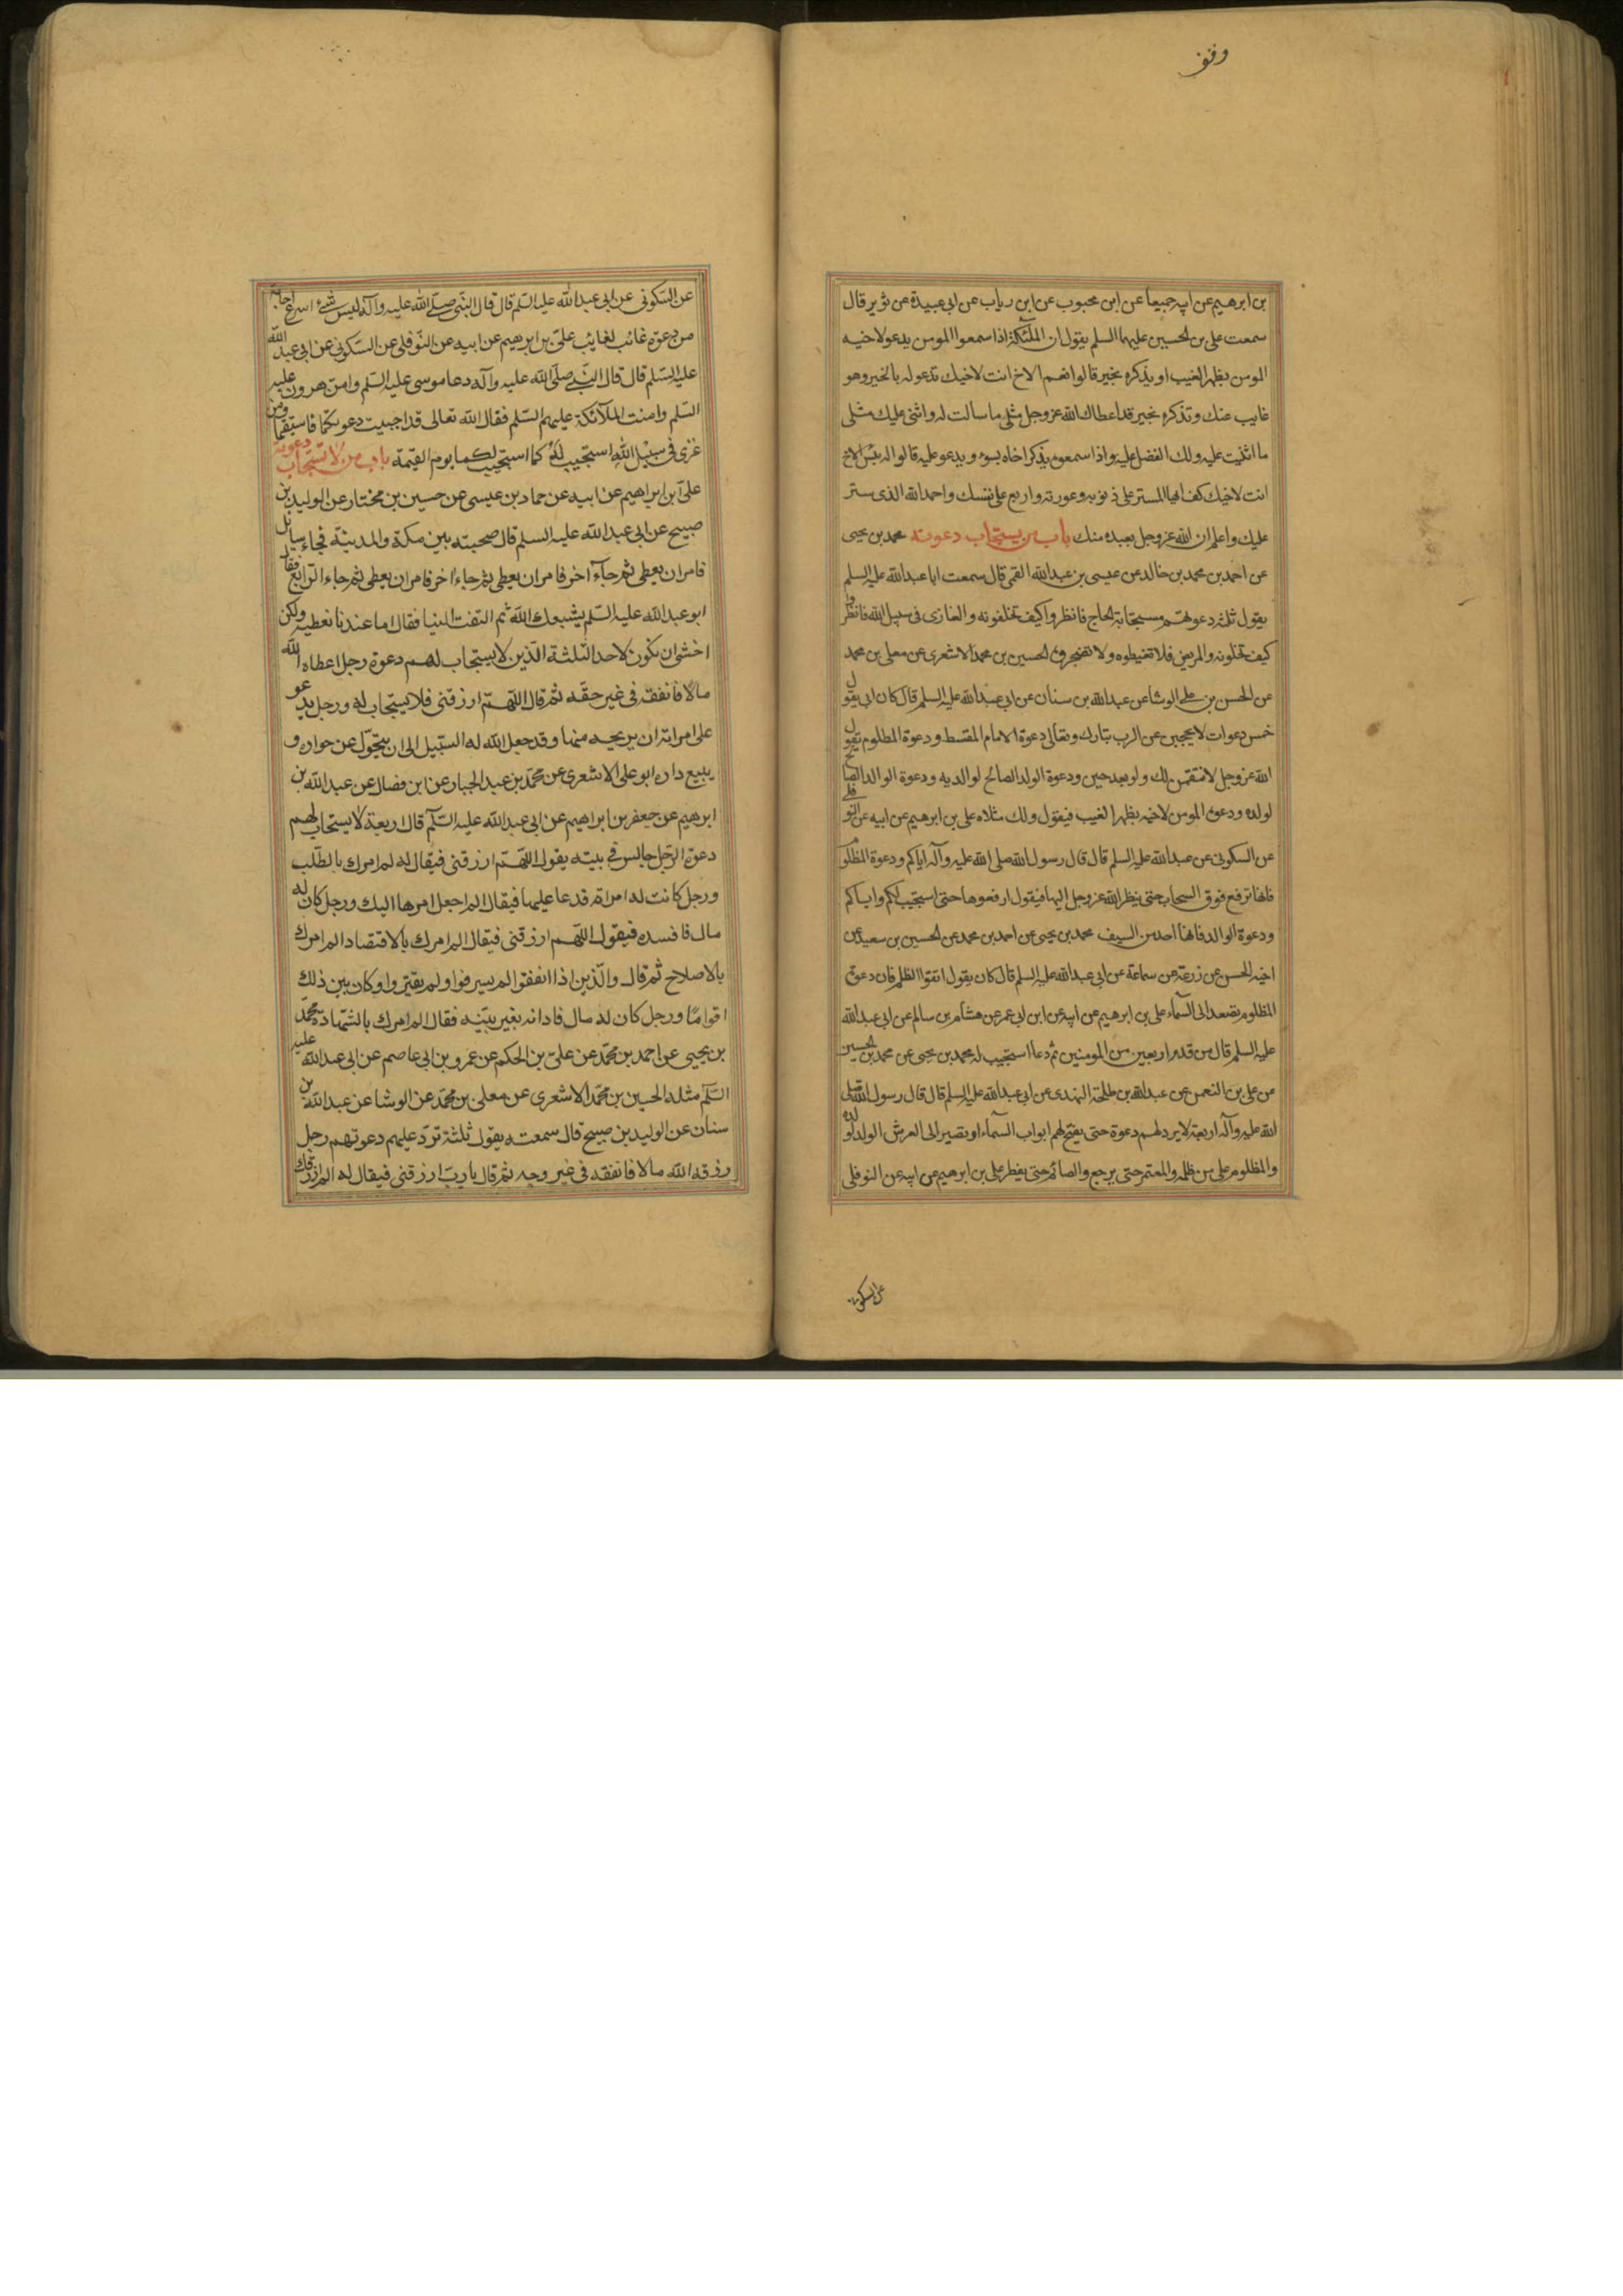 وقف
بن ابرهيم عن ابيه جميعا عن ابن محبوب عن ابن رياب عن ابى عبيدة عن ثوير قال
سمعت على بن الحسين عليهما السلم يقول ان الملئكة اذا سمعوا المومن يدعو لاخيه
المومن بظهر الغيب او يذكره بخير قالوا نعم الاخ انت لاخيك تدعو له بالخير وهو
غايب عنك وتذكره بخير قد اعطاك الله عز وجل مثلى ما سالت له واثنى عليك مثلى
ما اثنيت عليه ولك الفضل عليه واذا سمعوه يذكر اخاه بسوء ويدعو عليه قالوا له بئس الاخ
انت لاخيك كف ايها المستر على ذنوبه وعورته واربع على نفسك واحمد الله الذى ستر
عليك واعلم ان الله عز وجل بعبده منك باب من يستجاب دعوته محمد بن يحيى
عن احمد بن محمد بن خالد عن عيسى بن عبدالله القمى قال سمعت ابا عبدالله عليه السلم
يقول ثلثة دعوتهم مستجابة الحاج فانظروا كيف تخلفونه والغازى فى سبيل الله فانظروا
كيف تخلونه والمريض فلا تغيظوه ولا تضجروه الحسين بن محمد الاشعرى عن معلى بن محمد
عن الحسن بن على الوشا عن عبدالله بن سنان عن ابى عبدالله عليه السلم قال كان ابى يقول
خمس دعوات لا يحجبن عن الرب تبارك وتعالى دعوة الامام المقسط ودعوة المظلوم يقول
الله عز وجل لانتقمن لك ولو بعد حين ودعوة الولد الصالح لوالديه ودعوة الوالد الصالح
لولده ودعوة المومن لاخيه بظهر الغيب فيقول ولك مثلاه على بن ابرهيم عن ابيه عن النوفلى
عن السكونى عن عبدالله عليه السلم قال قال رسول الله صلى الله عليه وآله اياكم ودعوة المظلوم
فانها ترفع فوق السحاب حتى ينظر الله عز وجل اليها فيقول ارفعوها حتى استجيب لكم واياكم
ودعوة الوالد فانها احد من السيف محمد بن يحيى عن احمد بن محمد عن الحسين بن سعيد عن
اخيه الحسن عن زرعة عن سماعة عن ابى عبدالله عليه السلم قال كان يقول اتقوا الظلم فان دعوة
المظلوم تصعد الى السمآء على بن ابرهيم عن ابيه عن ابن ابى عمر عن هشام بن سالم عن ابى عبدالله
عليه السلم قال من قدم اربعين من المومنين ثم دعا استجيب له محمد بن يحيى عن محمد بن الحسين
عن على بن النعمن عن عبدالله بن طلحة النهدى عن ابى عبدالله عليه السلم قال قال رسول الله صلى
الله عليه وآله اربعة لا يرد لهم دعوة حتى يفتح لهم ابواب السمآء او تصير الى العرش الوالد لولده
والمظلوم على من ظلمه والمعتمر حتى يرجع والصائم حتى يفطر على بن ابرهيم عن ابيه عن النوفلى
عن السكونى
عن السكونى عن ابى عبدالله عليه السلم قال قال النبى صلى الله عليه وآله ليس شئ اسرع اجابة
من دعوة غائب لغايب على بن ابرهيم عن ابيه عن النوفلى عن السكونى عن ابى عبد الله
عليه السلم قال قال النبى صلى الله عليه وآله دعا موسى عليه السلم وامن هرون عليه
السلم وامنت الملآئكة عليهم السلم فقال الله تعالى قد اجيبت دعوتكما فاستقيما ومن
غزى فى سبيل الله استجيب له كما استجيب لكما يوم القيمة باب من لا تستجاب دعوته
على بن ابراهيم عن ابيه عن حماد بن عيسى عن حسين بن مختار عن الوليد بن
صبيح عن ابى عبدالله عليه السلم قال صحبته بين مكة والمدينة فجاء سائل
فامر ان يعطى ثم جآء آخر فامر ان يعطى ثم جاء اخر فامر ان يعطى ثم جاء الرابع فقال
ابو عبدالله عليه السلم يشبعك الله ثم التفت الينا فقال اما عندنا نعطيه ولكن
اخشى ان نكون كاحد الثلثة الذين لا يستجاب لهم دعوة رجل اعطاه الله
مالا فانفقه فى غير حقه ثم قال اللهم ارزقنى فلا يستجاب له ورجل يدعو
على امراته ان يريحه منها وقد جعل الله له السبيل الى ان يتحول عن جواره و
يبيع داره ابو على الاشعرى عن محمد بن عبد الجبار عن ابن فضال عن عبدالله بن
ابرهيم عن جعفر بن ابراهيم عن ابى عبدالله عليه السلم قال اربعة لا يستجاب لهم
دعوة الرجل جالس فى بيته يقول اللهم ارزقنى فيقال له لم امرك بالطلب
ورجل كانت له امراة قد عا عليها فيقال الم اجعل امرها اليك ورجل كان له
مال فافسده فيقول اللهم ارزقنى فيقال الم امرك بالاقتصاد الم امرك
بالاصلاح ثم قال والذين اذا انفقوا لم يسرفوا ولم يقتروا وكان بين ذلك
اقواما ورجل كان له مال فادانه بغير بينه فقال الم امرك بالشهادة محمد
بن يحيى عن احمد بن محمد عن على بن الحكم عن عمرو بن ابى عاصم عن ابى عبدالله عليه
السلم مثله الحسين بن محمد الاشعرى عن معلى بن محمد عن الوشا عن عبدالله بن
سنان عن الوليد بن صبيح قال سمعته يقول ثلثة ترد عليهم دعوتهم رجل
رزقه الله مالا فانفقه فى غير وجهه ثم قال يا رب ارزقنى فيقال له الم ارزقك